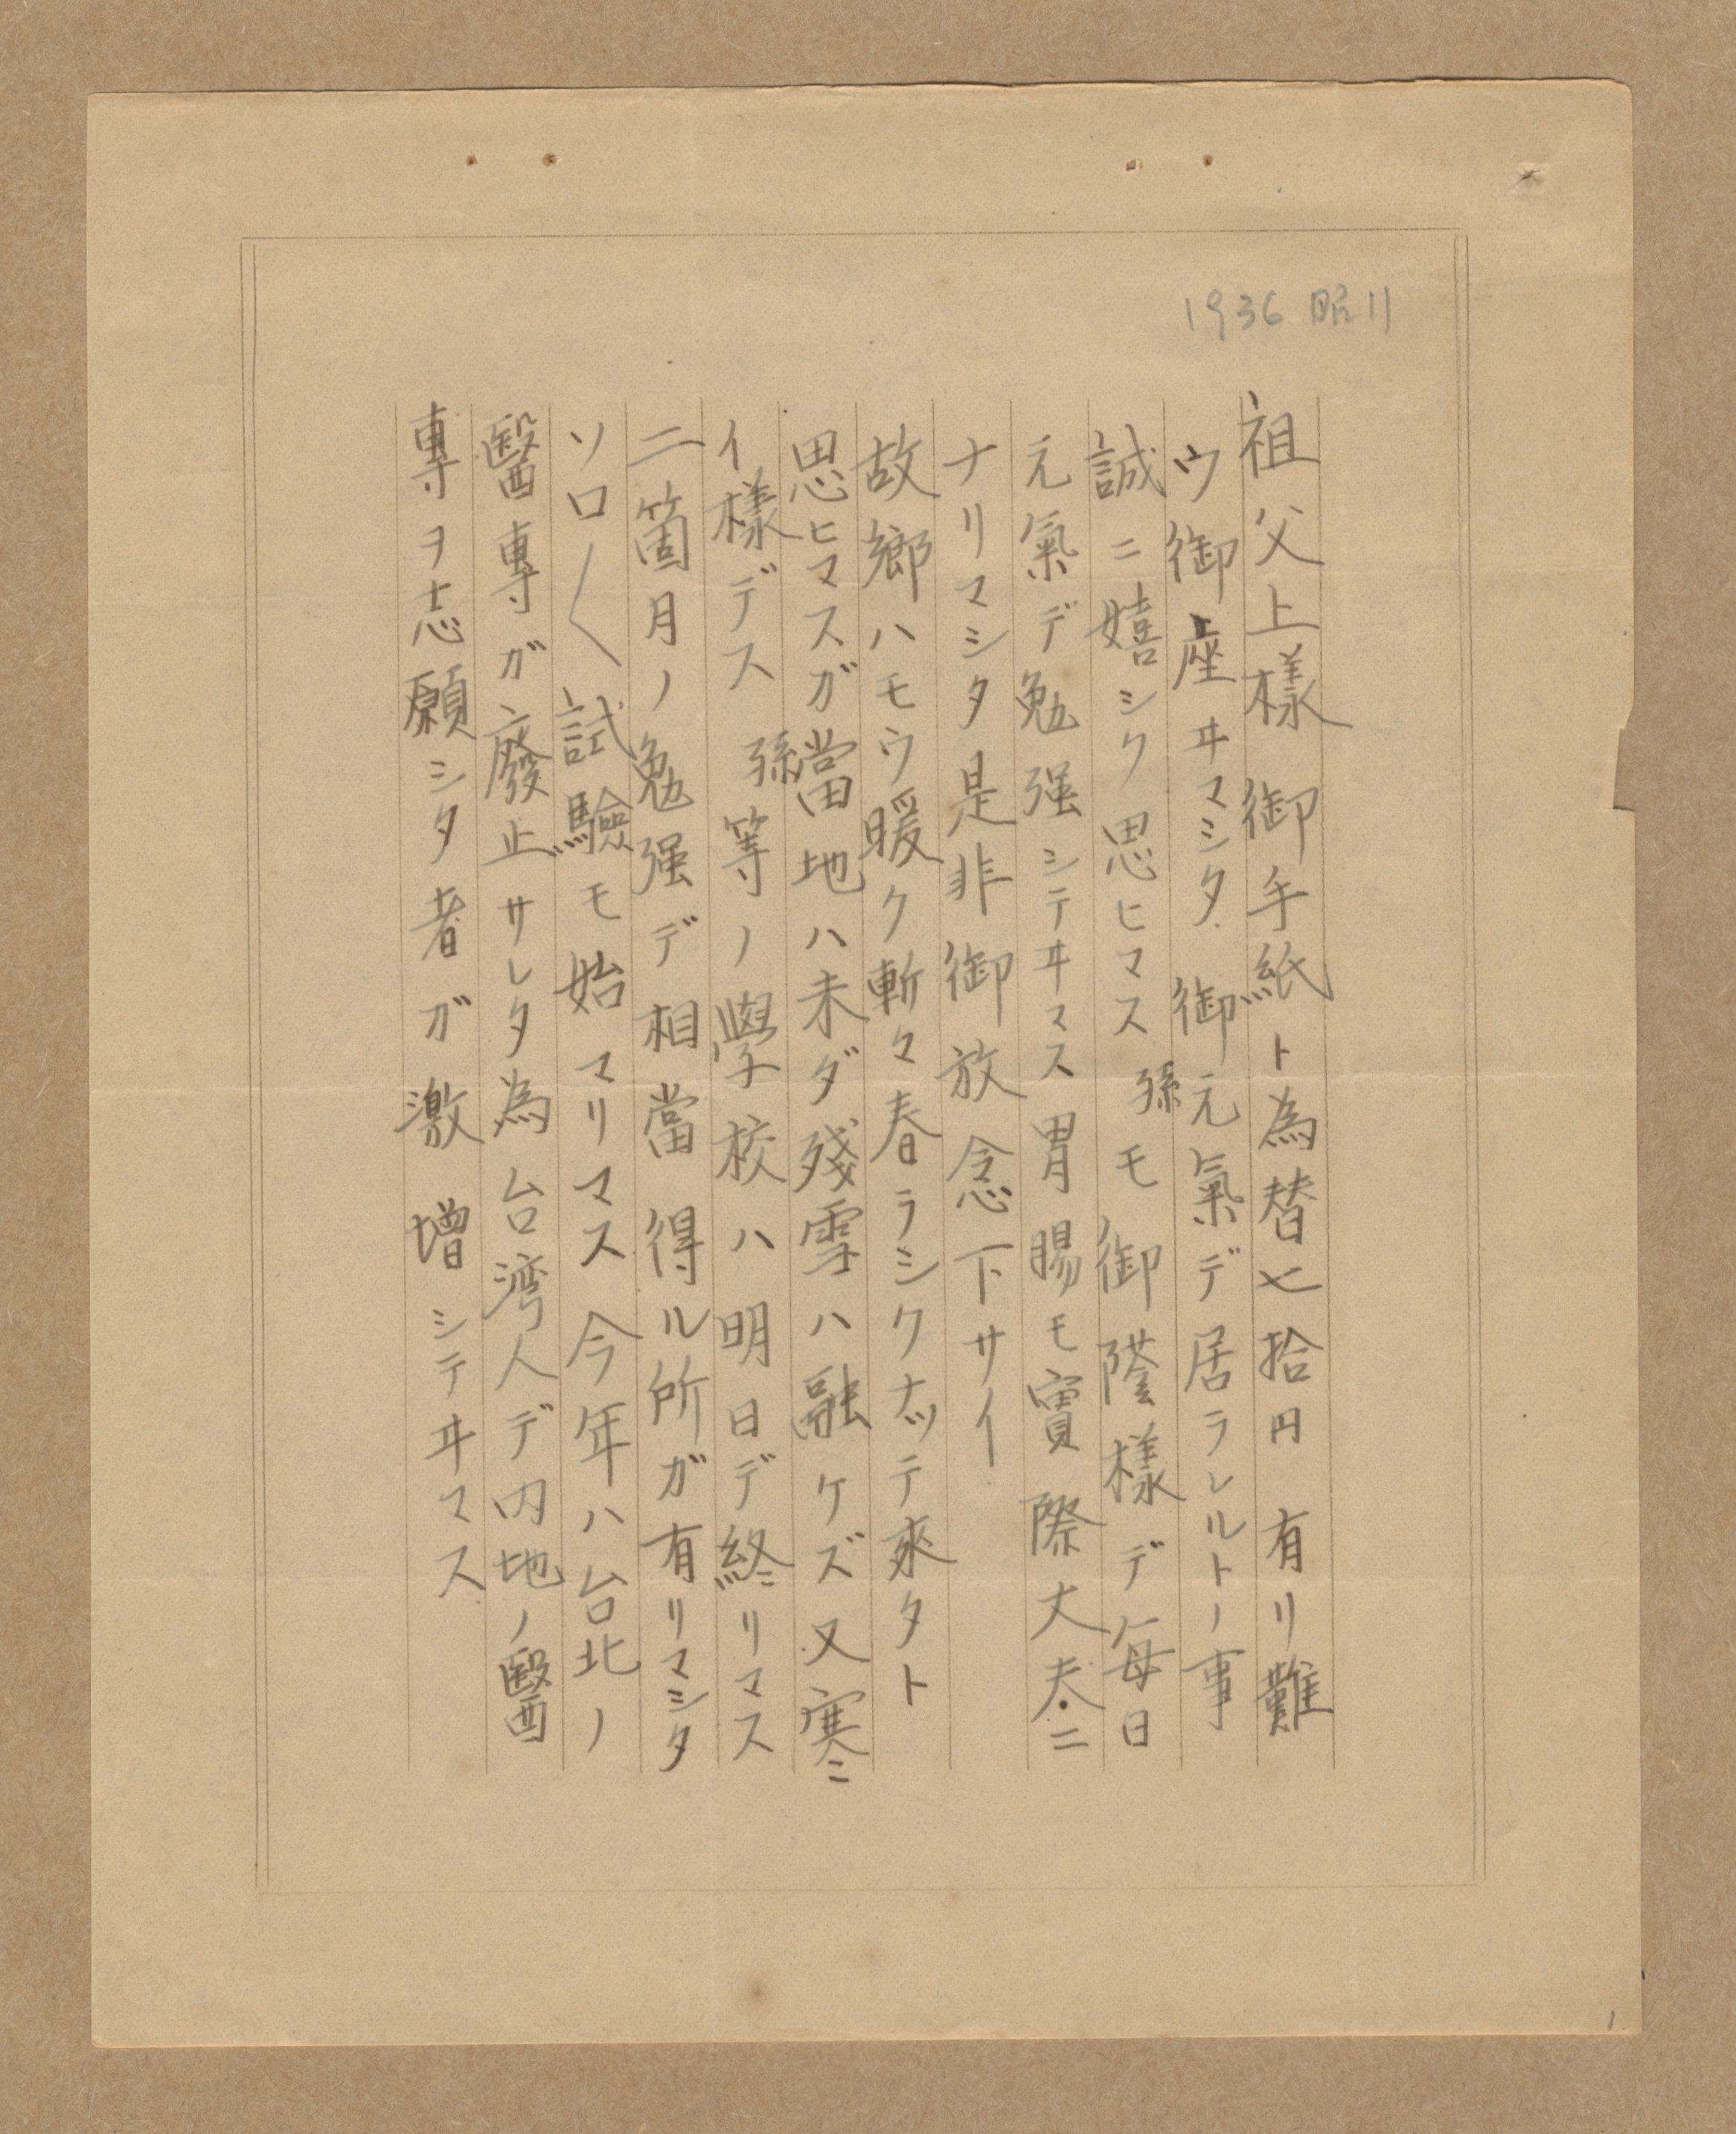 1936 昭11
祖父上樣 御手紙ト為替七拾円 有リ難
ウ御座ヰマシタ 御元氣デ居ラレルトノ事
誠ニ嬉シク思ヒマス 孫モ御蔭樣デ每日
元氣デ勉强シテヰマス胃腸モ實際丈夫ニ
ナリマシタ是非御放念下サイ
故鄉ハモウ暖ク漸々春ラシクナッテ來タト
思ヒマスガ當地ハ未ダ殘雪ハ融ケズ又寒
イ樣デス 孫等ノ學校ハ明日デ終リマス
二箇月ノ勉强デ相當得ル所ガ有リマシタ
ソロ〱試驗モ始マリマス今年ハ台北ノ
醫專ガ廢止サレタ為台湾人デ内地ノ醫
專ヲ志願シタ者ガ激增シテヰマス
1